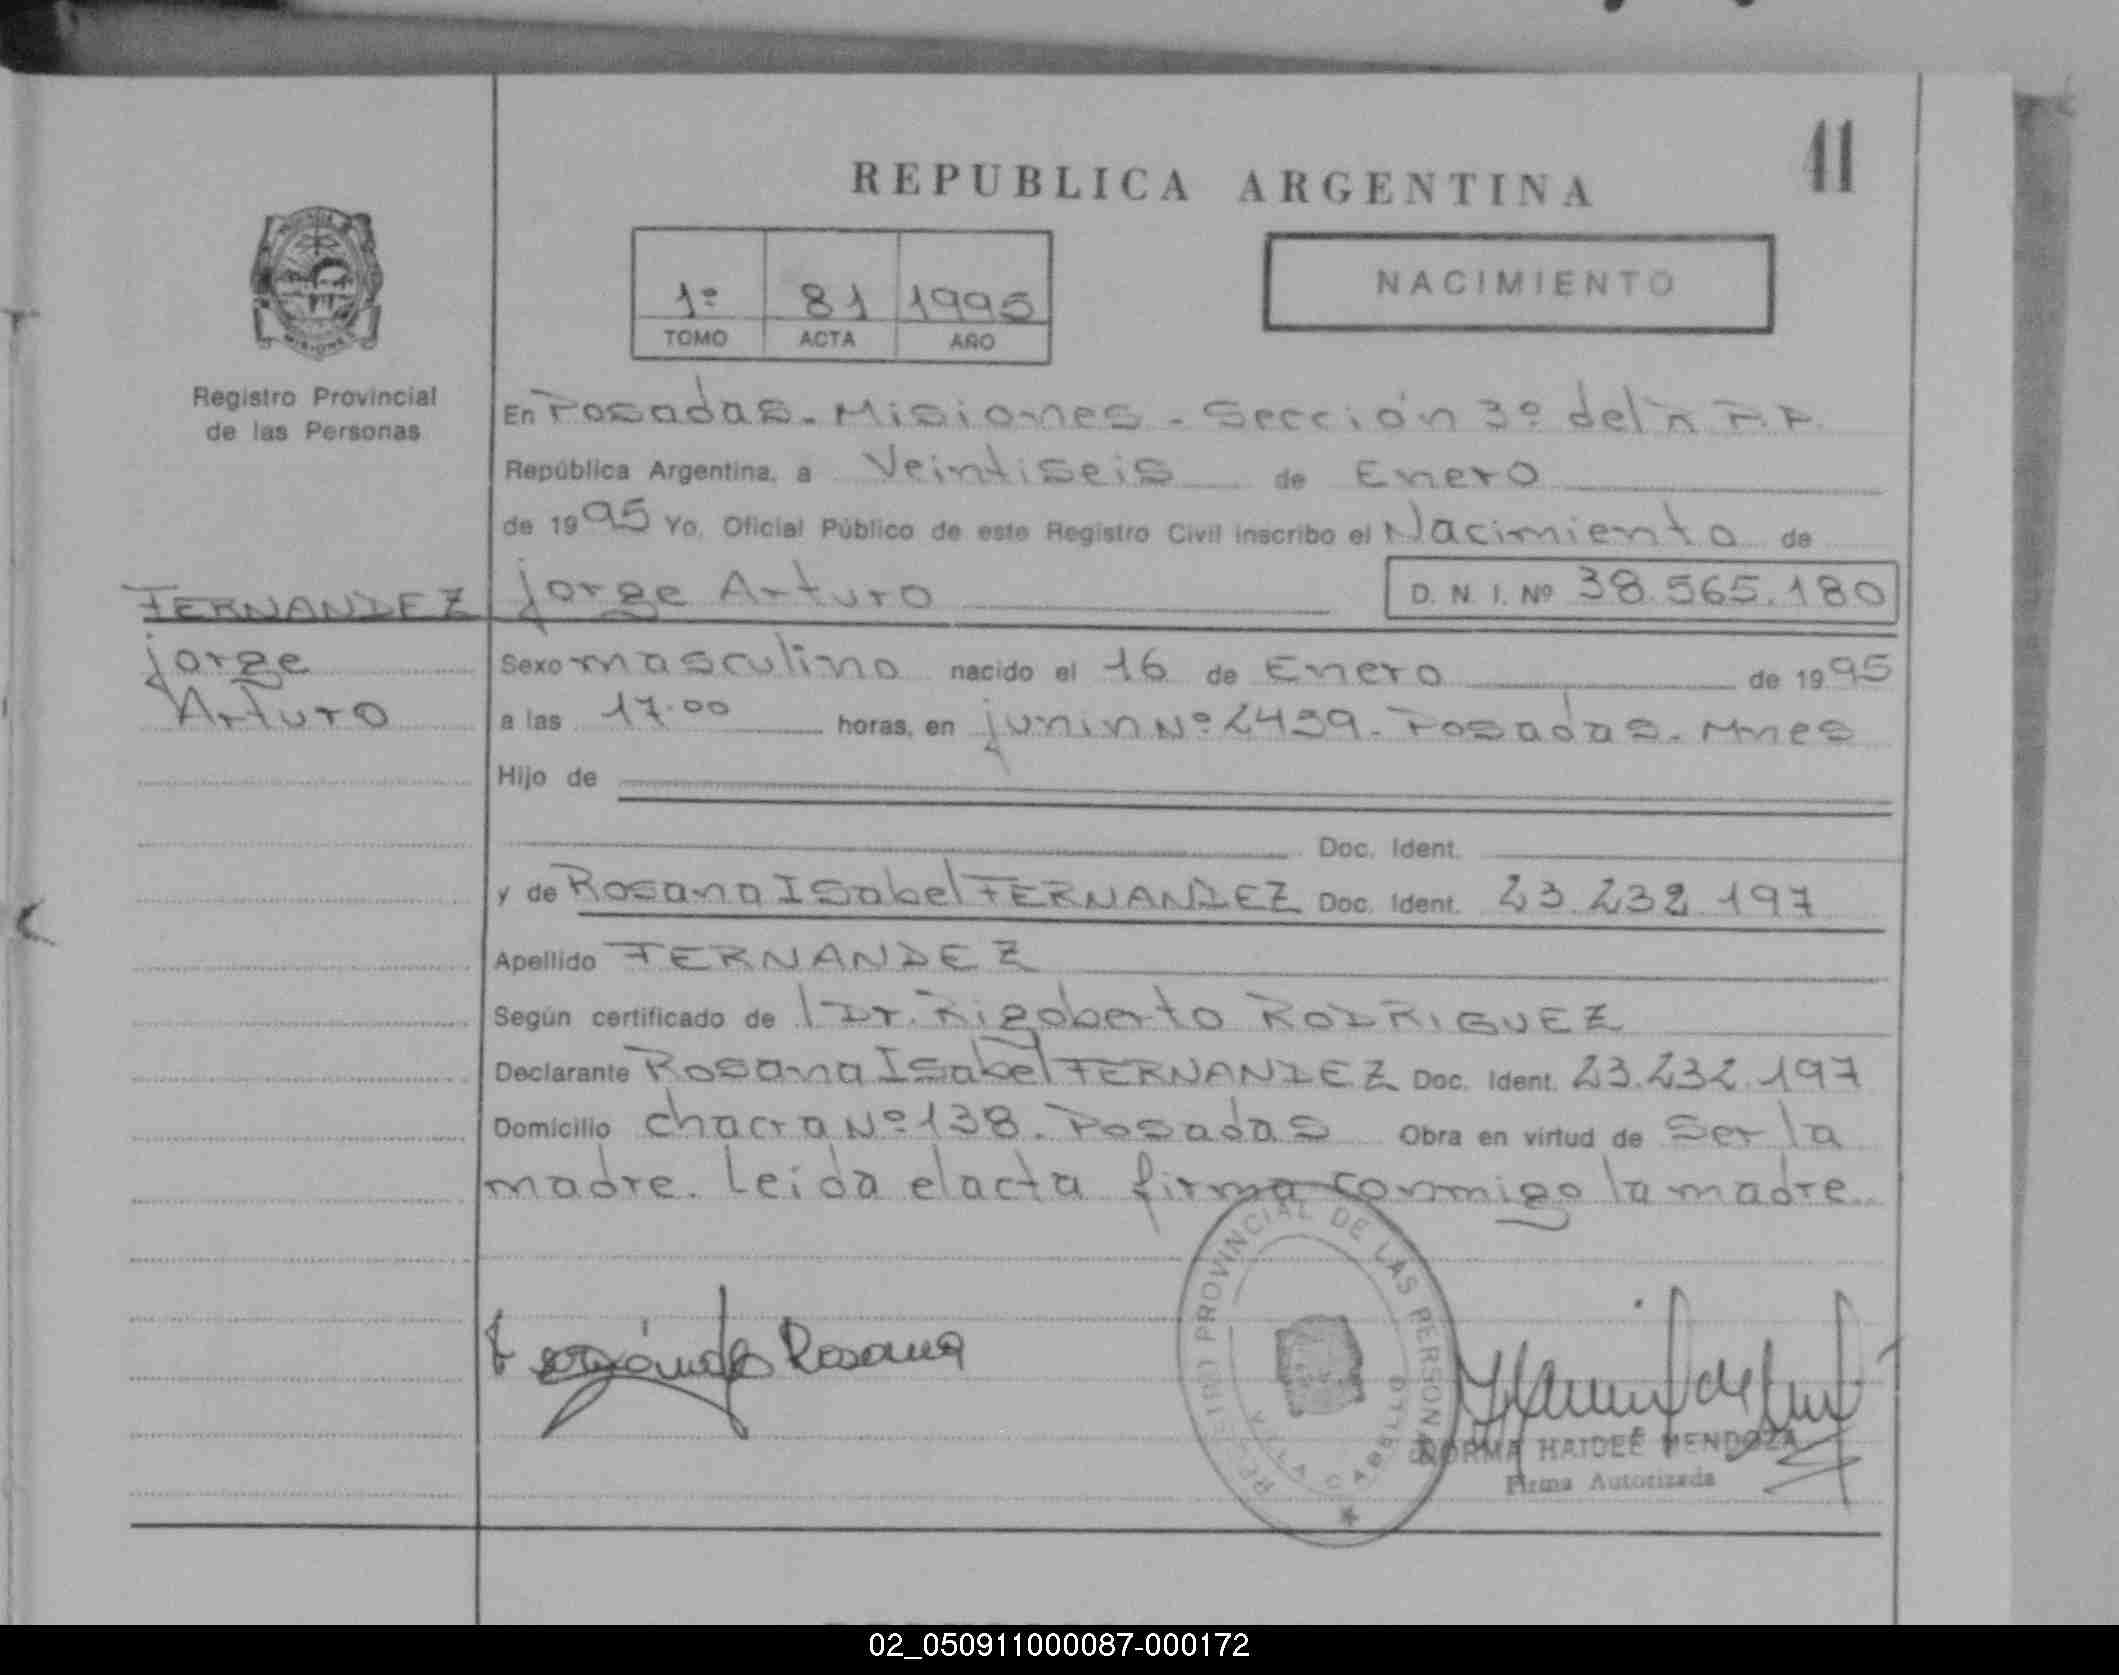 41
REPUBLICA ARGENTINA
1º 81 1995
TOMO ACTA AÑO
NACIMIENTO
MISIONES
Registro Provincial
de las Personas
En Posadas - Misiones - Sección 3º del R.P.P.
República Argentina, a Veintiseis de Enero
de 1995 Yo, Oficial Público de este Registro Civil inscribo el Nacimiento de
FERNANDEZ
Jorge
Arturo
Jorge Arturo D. N. I. Nº 38.565.180
Sexo masculino nacido el 16 de Enero de 1995
a las 17.00 horas, en Junin Nº 2459 - Posadas - Mnes
Hijo de
Doc. Ident.
y de Rosana Isabel FERNANDEZ Doc. Ident. 23.232.197
Apellido FERNANDEZ
Según certificado de l Dr. Rigoberto RODRIGUEZ
Declarante Rosana Isabel FERNANDEZ Doc. Ident. 23.232.197
Domicilio chacra Nº 138. Posadas Obra en virtud de Ser la
madre. Leida el acta firma conmigo la madre
REGISTRO PROVINCIAL DE LAS PERSONAS
VILLA CABELLO
Fernández Rosana
NORMA HAIDEÉ MENDOZA
Firma Autorizada
02_050911000087-000172